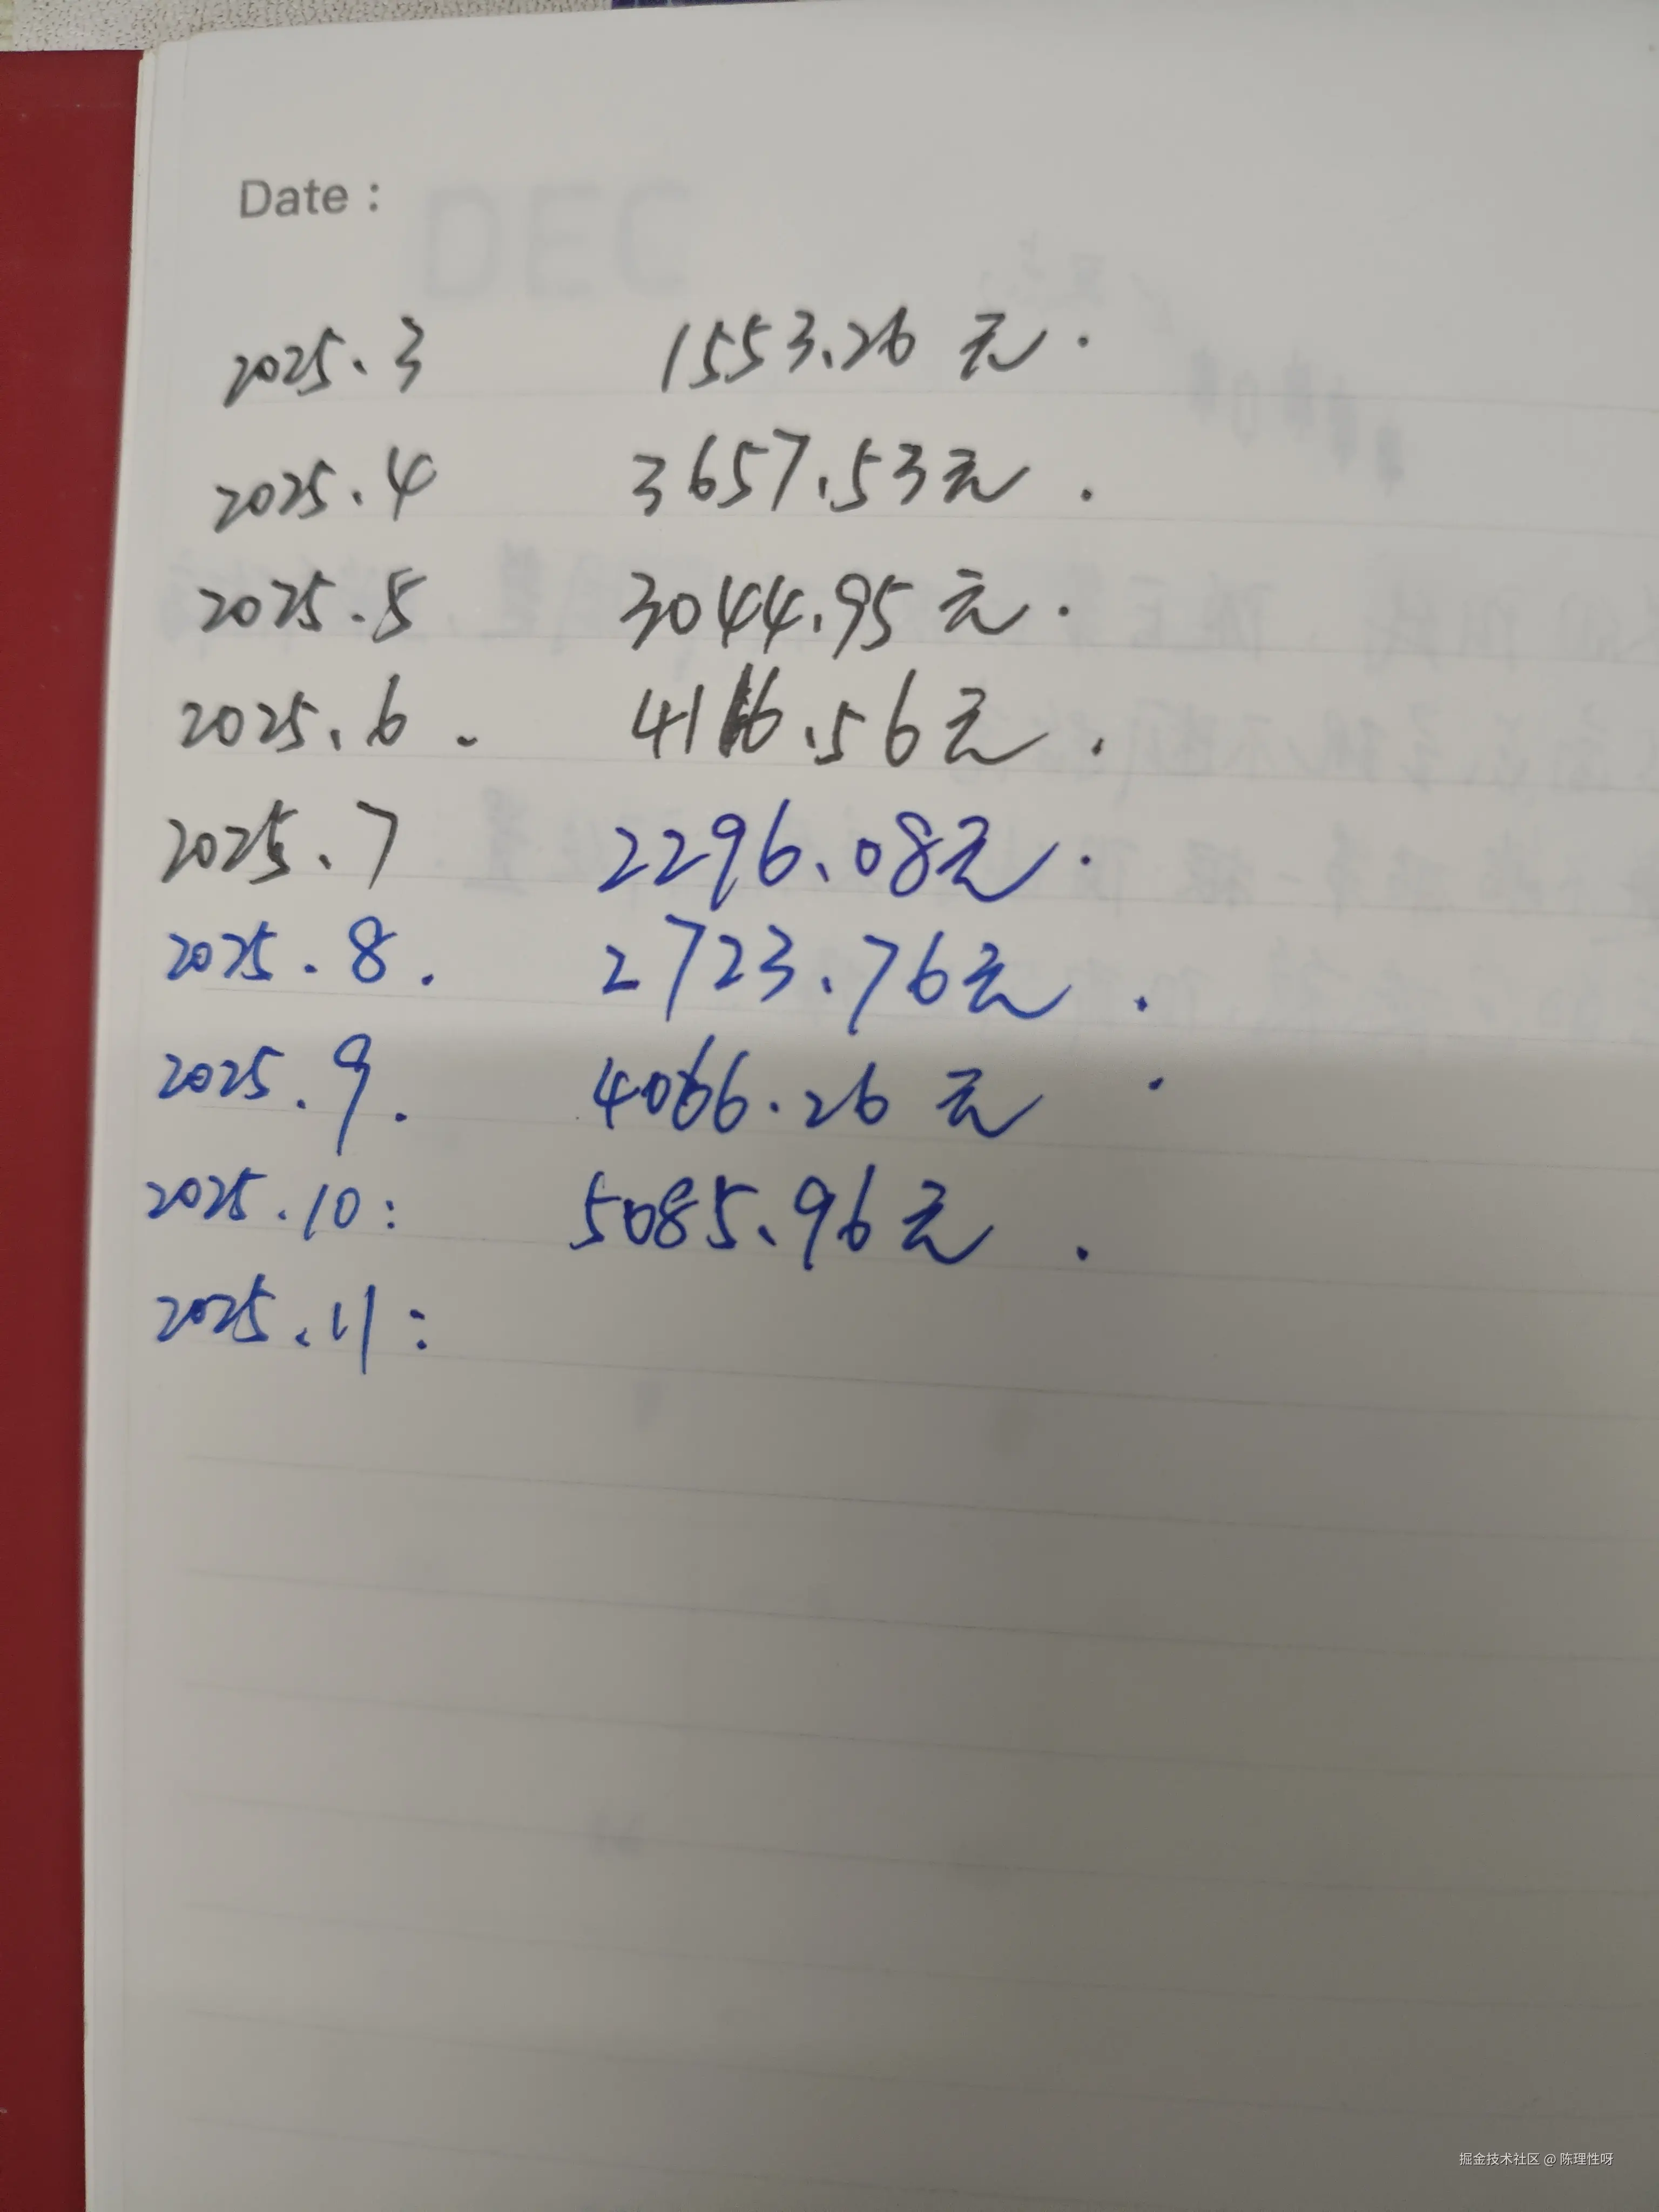 Date :
DEC
2025.3 1553.26 元.
2025.4 3657.53元.
2025.5 3044.95 元.
2025.6. 4116.56元.
2025.7 2296.08元.
2025.8. 2723.76元.
2025.9. 4066.26 元.
2025.10: 5085.96元.
2025.11:
掘金技术社区 @ 陈理性呀